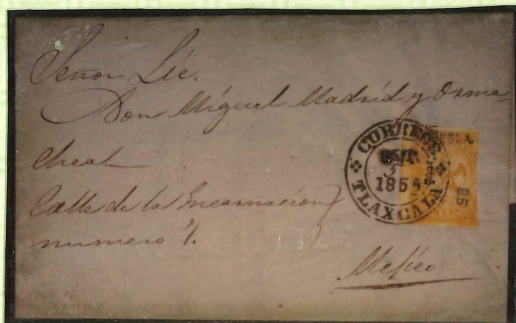 Señor Lic.
Don Miguel Madrid y Osma-
cheal
Calle de la Encarnacion
numero 4.
Mejico
CORREOS
1864
TLAXCALA
85